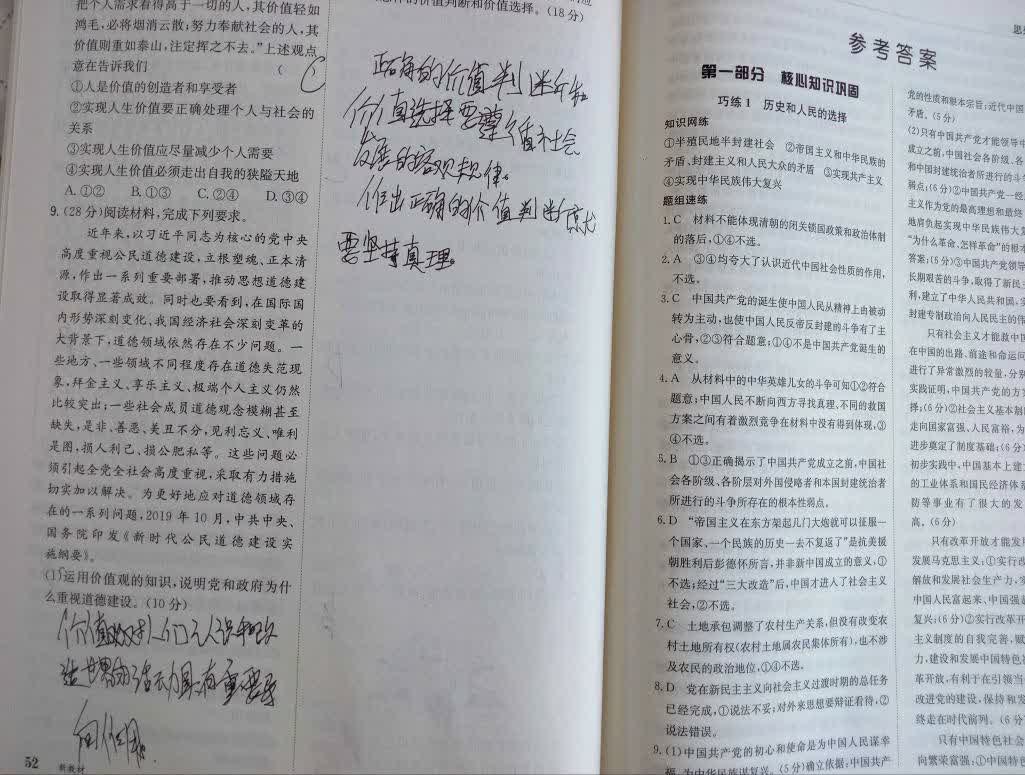 把个人需求看得高于一切的人,其价值轻如
鸿毛,必将烟消云散;努力奉献社会的人,其
价值则重如泰山,注定挥之不去。”上述观点
意在告诉我们 ( C )
①人是价值的创造者和享受者
②实现人生价值要正确处理个人与社会的
关系
③实现人生价值应尽量减少个人需要
④实现人生价值必须走出自我的狭隘天地
A.①② B.①③ C.②④ D.③④
9.(28分)阅读材料,完成下列要求。
近年来,以习近平同志为核心的党中央
高度重视公民道德建设,立根塑魂、正本清
源,作出一系列重要部署,推动思想道德建
设取得显著成效。同时也要看到,在国际国
内形势深刻变化、我国经济社会深刻变革的
大背景下,道德领域依然存在不少问题。一
些地方、一些领域不同程度存在道德失范现
象,拜金主义、享乐主义、极端个人主义仍然
比较突出;一些社会成员道德观念模糊甚至
缺失,是非、善恶、美丑不分,见利忘义、唯利
是图,损人利己、损公肥私等。这些问题必
须引起全党全社会高度重视,采取有力措施
切实加以解决。为更好地应对道德领域存
在的一系列问题,2019年10月,中共中央、
国务院印发《新时代公民道德建设实
施纲要》。
(1)运用价值观的知识,说明党和政府为什
么重视道德建设。(10分)
价值观对人们认识和改
造世界的活动具有重要导
向作用。
52
新教材
的价值判断和价值选择。(18分)
正确的价值判断和
价值选择要遵循社会
发展的客观规律。
作出正确的价值判断
要坚持真理。
思
参考答案
第一部分 核心知识巩固
巧练1 历史和人民的选择
知识网络
①半殖民地半封建社会 ②帝国主义和中华民族的
矛盾、封建主义和人民大众的矛盾 ③实现共产主义
④实现中华民族伟大复兴
题组速练
1.C 材料不能体现清朝的闭关锁国政策和政治体制
的落后,①④不选。
2.A ③④均夸大了认识近代中国社会性质的作用,
不选。
3.C 中国共产党的诞生使中国人民从精神上由被动
转为主动,也使中国人民反帝反封建的斗争有了主
心骨,②③符合题意;①④不是中国共产党诞生的
意义。
4.A 从材料中的中华英雄儿女的斗争可知①②符合
题意;中国人民不断向西方寻找真理、不同的救国
方案之间有着激烈竞争在材料中没有得到体现,③
④不选。
5.B ①③正确揭示了中国共产党成立之前,中国社
会各阶级、各阶层对外国侵略者和本国封建统治者
所进行的斗争所存在的根本性弱点。
6.D “帝国主义在东方架起几门大炮就可以征服一
个国家、一个民族的历史一去不复返了”是抗美援
朝胜利后彭德怀所言,并非新中国成立的意义,①
不选;经过“三大改造”后,中国才进入了社会主义
社会,②不选。
7.C 土地承包调整了农村生产关系,但没有改变农
村土地所有权(农村土地属农民集体所有),也不涉
及农民的政治地位,①④不选。
8.D 党在新民主主义向社会主义过渡时期的总任务
已经完成,①说法不妥;对外来思想要辩证看待,②
说法错误。
9.(1)中国共产党的初心和使命是为中国人民谋幸
福,为中华民族谋复兴。(5分)确立依据:中国共产
党的性质和根本宗旨;近代中国
矛盾。(5分)
(2)只有中国共产党才能领导中
成立之前,中国社会各阶级、各
和中国封建统治者所进行的斗
弱点;(6分)②中国共产党一经
主义作为党的最高理想和最终
地肩负起实现中华民族伟大复
“为什么革命、怎样革命”的根本
答案;(5分)③中国共产党领导
长期艰苦的斗争,取得了新民主
利,建立了中华人民共和国,实
封建专制政治向人民民主的伟
只有社会主义才能救中国
在中国的出路、前途和命运问
进行了异常激烈的较量,分别
实践证明,中国共产党的方
择;(6分)②社会主义基本制
走向国家富强、人民富裕,为
进步奠定了制度基础;(6分)
初步实践中,中国基本上建立
的工业体系和国民经济体系
防等事业有了很大的发
高。(6分)
只有改革开放才能发
发展马克思主义:①实行改
解放和发展社会生产力,实
中国人民富起来、中国强
复兴;(6分)②实行改革开
主义制度的自我完善,赋
力,建设和发展中国特色
革开放,有利于在引领当
改进党的建设,保持和发
终走在时代前列。(6分)
只有中国特色社会
向繁荣富强:①中国特色